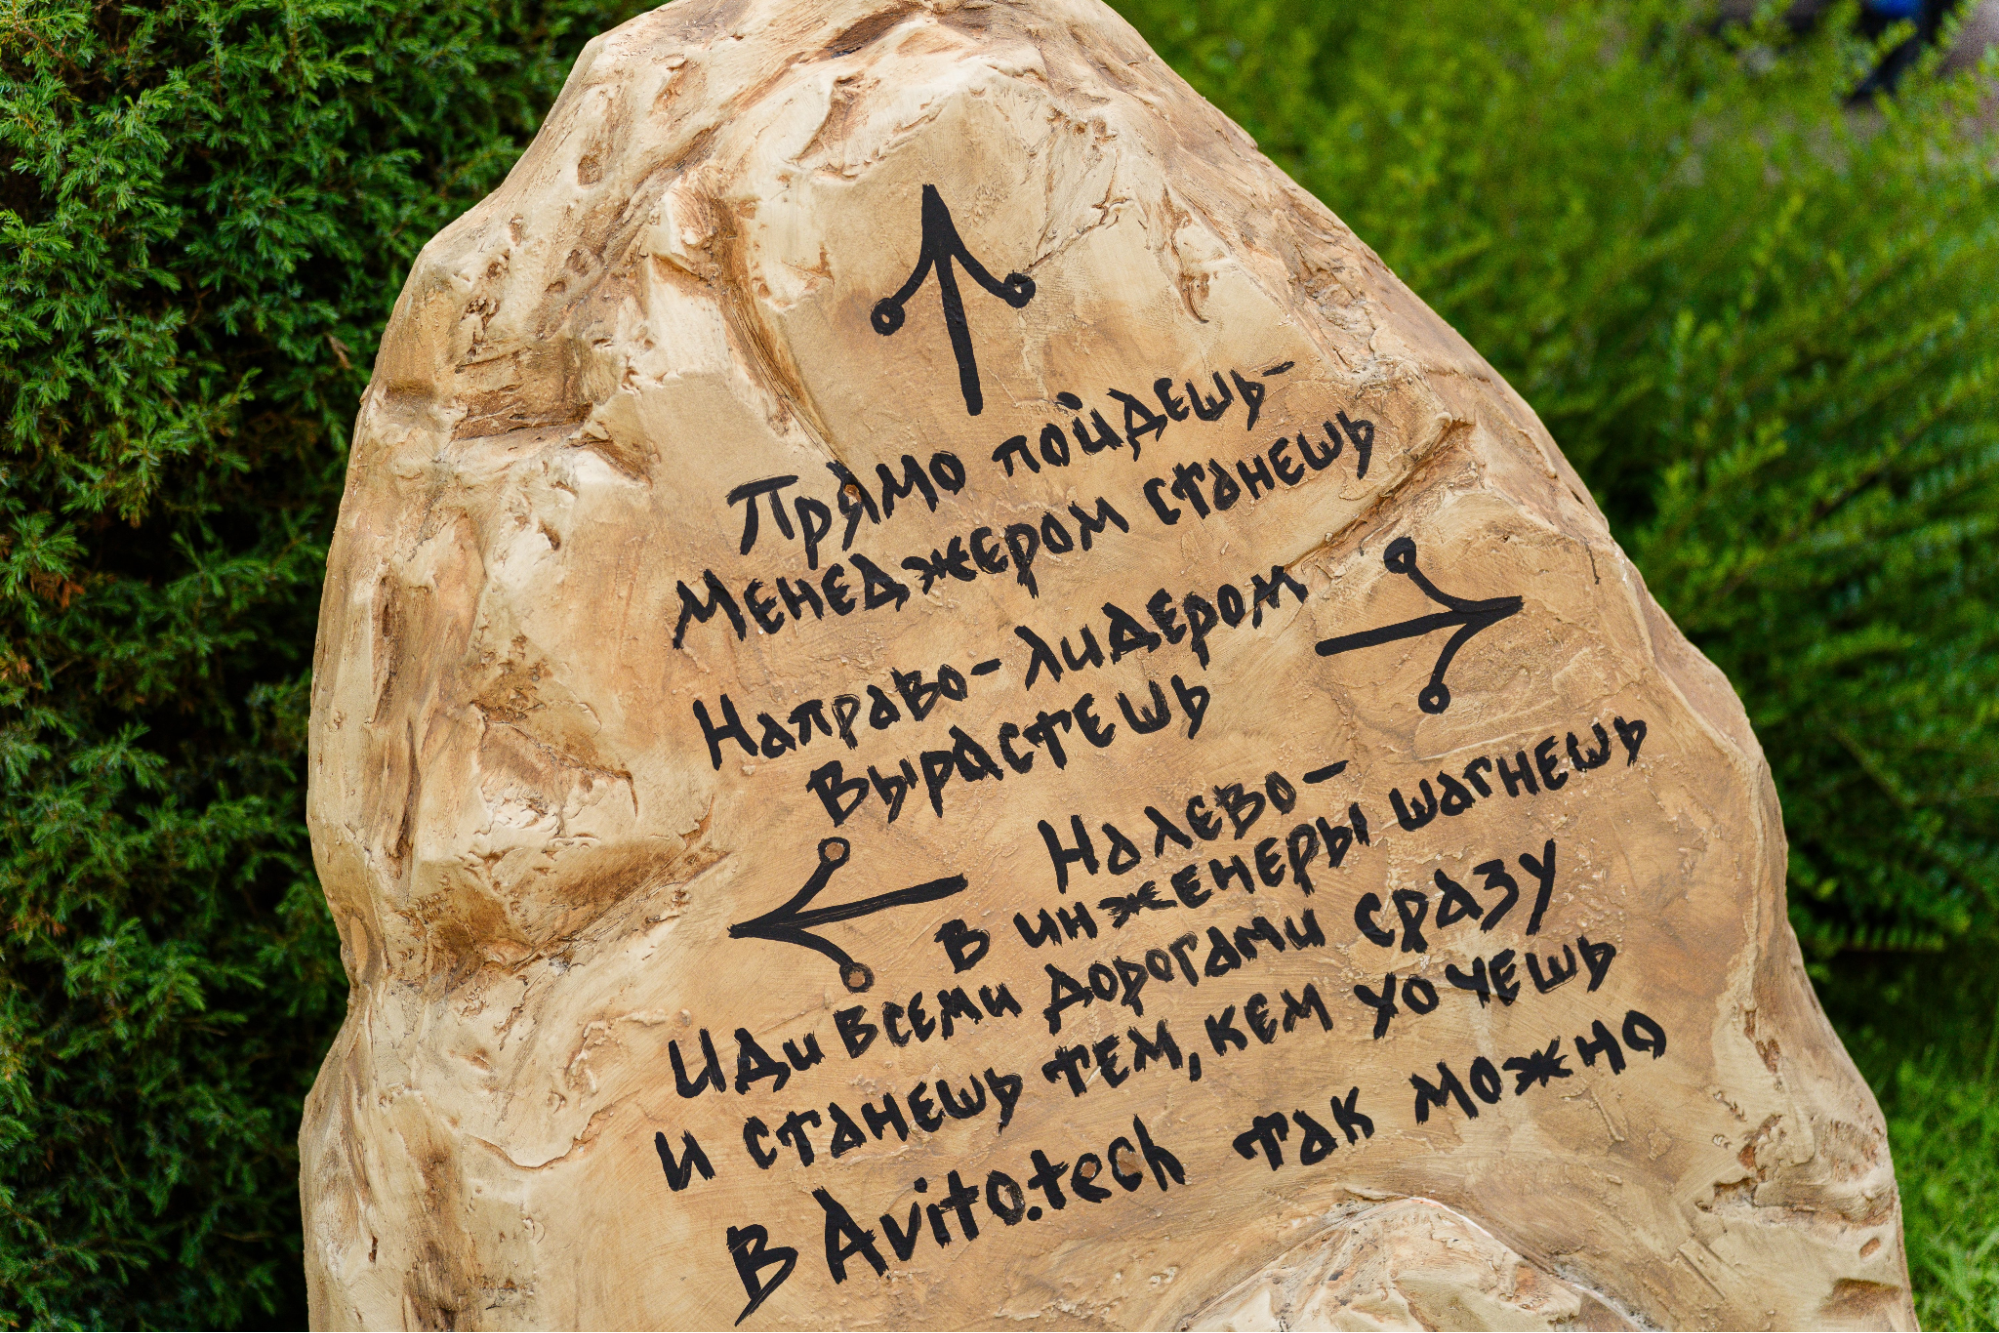 Прямо пойдешь-
Менеджером станешь
Направо-лидером
вырастешь
Налево-
в инженеры шагнешь
Иди всеми дорогами сразу
и станешь тем, кем хочешь
В Avito.tech так можно